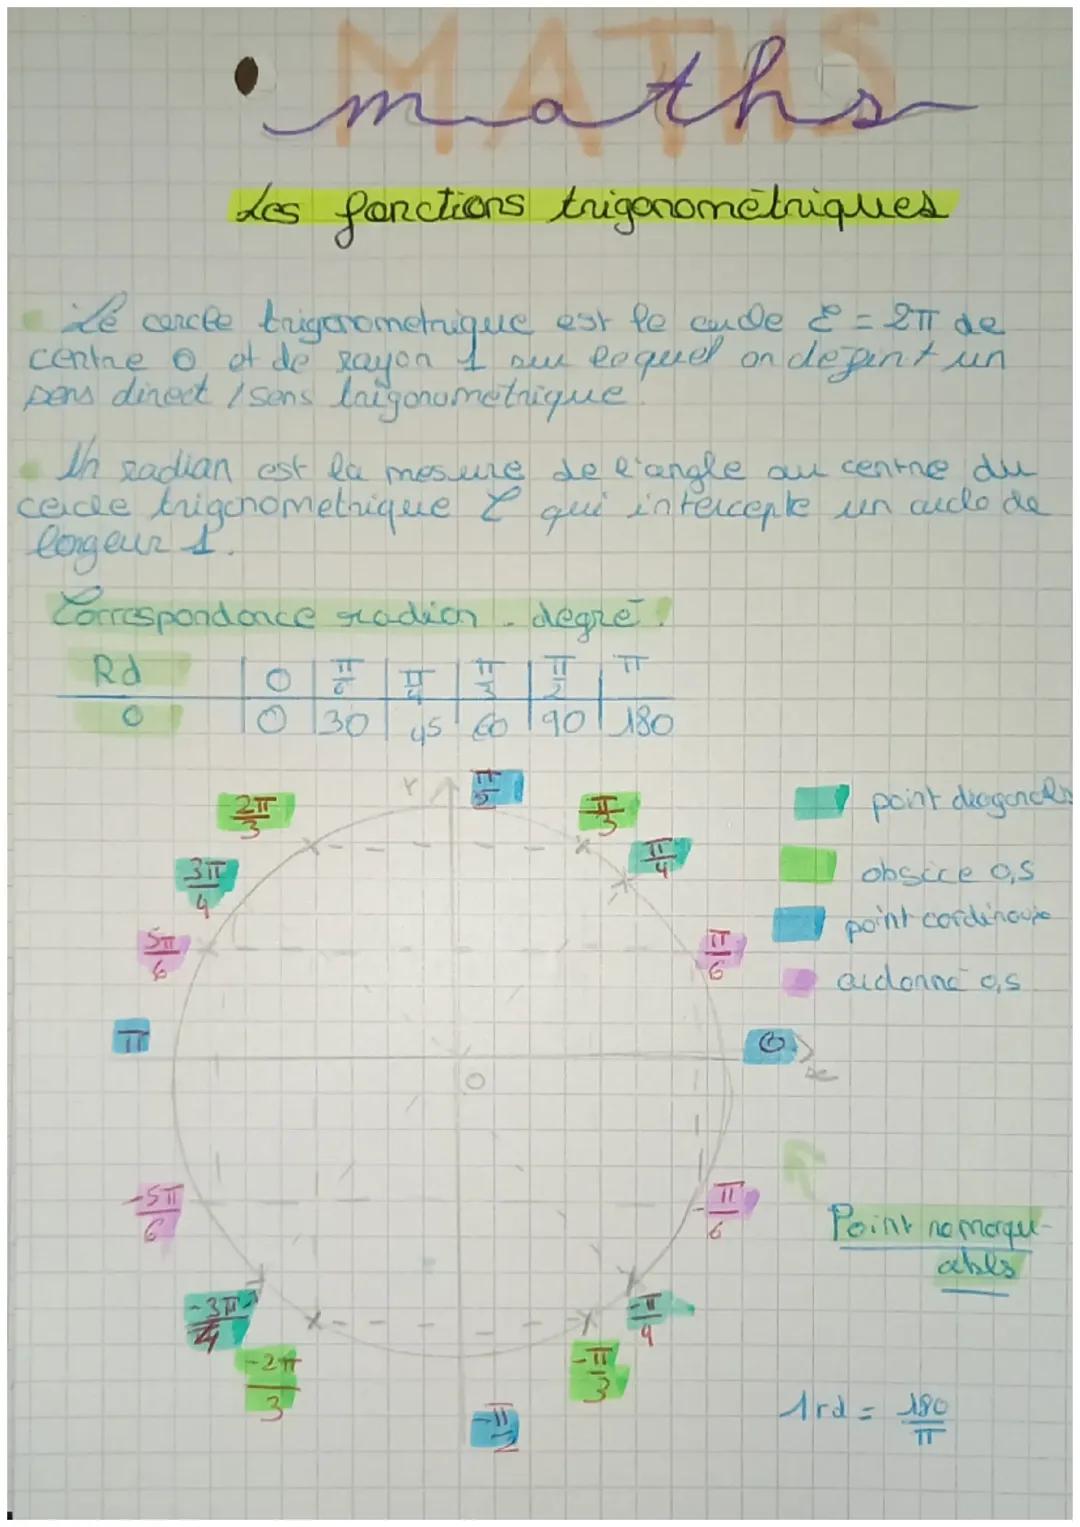 MATHS
maths
Les fonctions trigonométriques
Le cercle trigonometrique est le cercle C = 2π de
centre O et de rayon 1 sur lequel on definit un
sens direct / sens trigonometrique.
Un radian est la mesure de l'angle au centre du
cercle trigonometrique C qui intercepte un arc de
longeur 1.
Correspondance radian - degré.
Rd | 0 | π/6 | π/4 | π/3 | π/2 | π
0 | 0 | 30 | 45 | 60 | 90 | 180
Y
π/2
2π/3
π/3
point diagonales
3π/4
π/4
obscice 0,5
5π/6
π/6
point cordinaux
ordonné 0,5
π
0
O
x
-5π/6
-π/6
Point remarqu-
ables
-3π/4
-π/4
-2π/3
-π/3
-π/2
1rd = 180/π